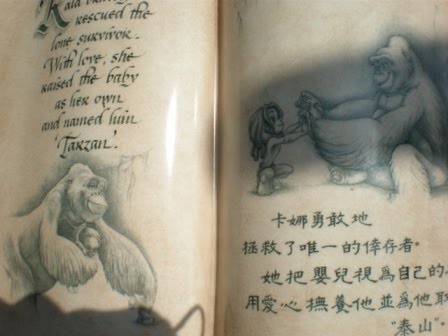 Kala bravely
rescued the
lone survivor.
With love, she
raised the baby
as her own
and named him
'Tarzan'.
卡娜勇敢地
拯救了唯一的倖存者。
她把嬰兒視為自己的
用愛心撫養他並為他取
"泰山"